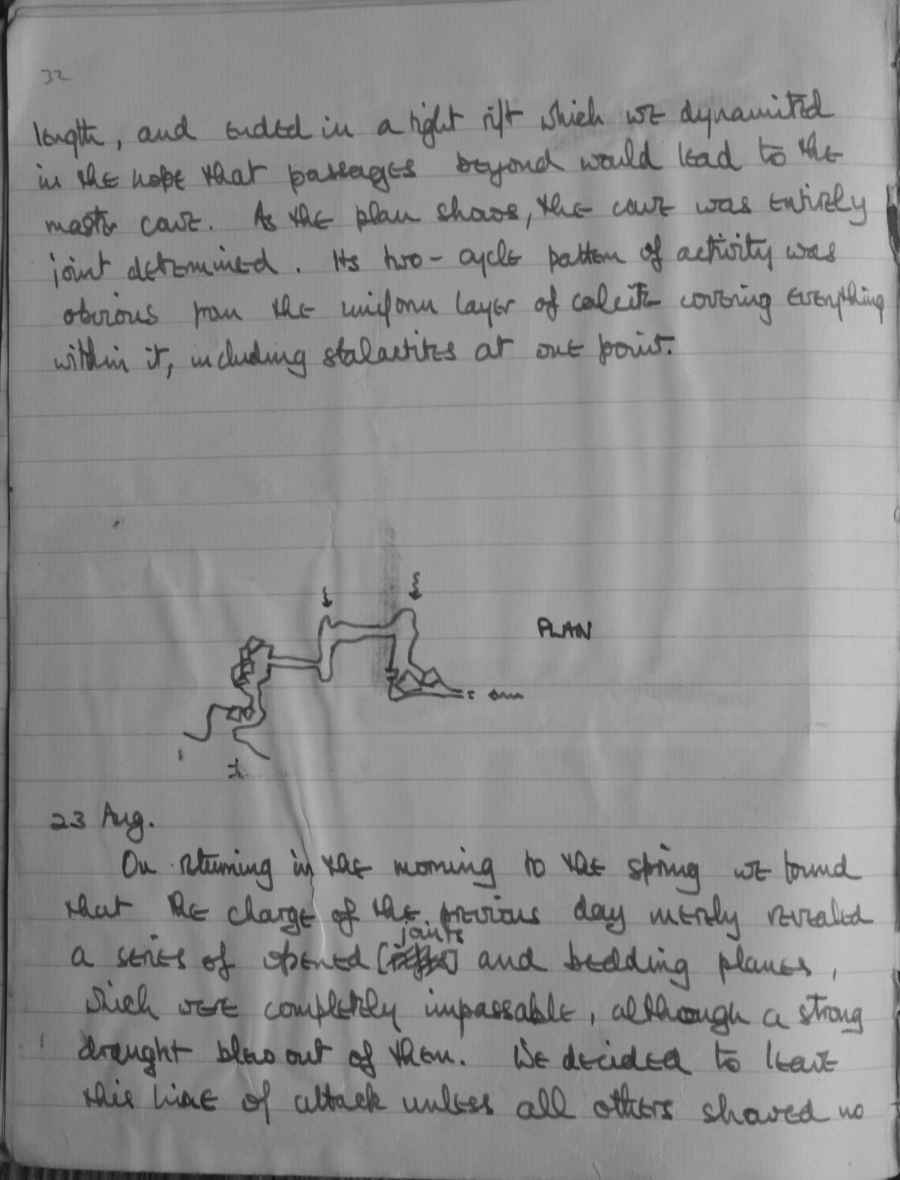 32
length, and ended in a tight rift which we dynamited
in the hope that passages beyond would lead to the
master cave. As the plan shows, the cave was entirely
joint determined. Its two-cycle pattern of activity was
obvious from the uniform layer of calcite covering everything
within it, including stalactites at one point.
PLAN
23 Aug.
On returning in the morning to the spring we found
that the charge of the previous day merely revealed
joints
a series of opened and bedding planes,
which were completely impassable, although a strong
draught blew out of them. We decided to leave
this line of attack unless all others showed no